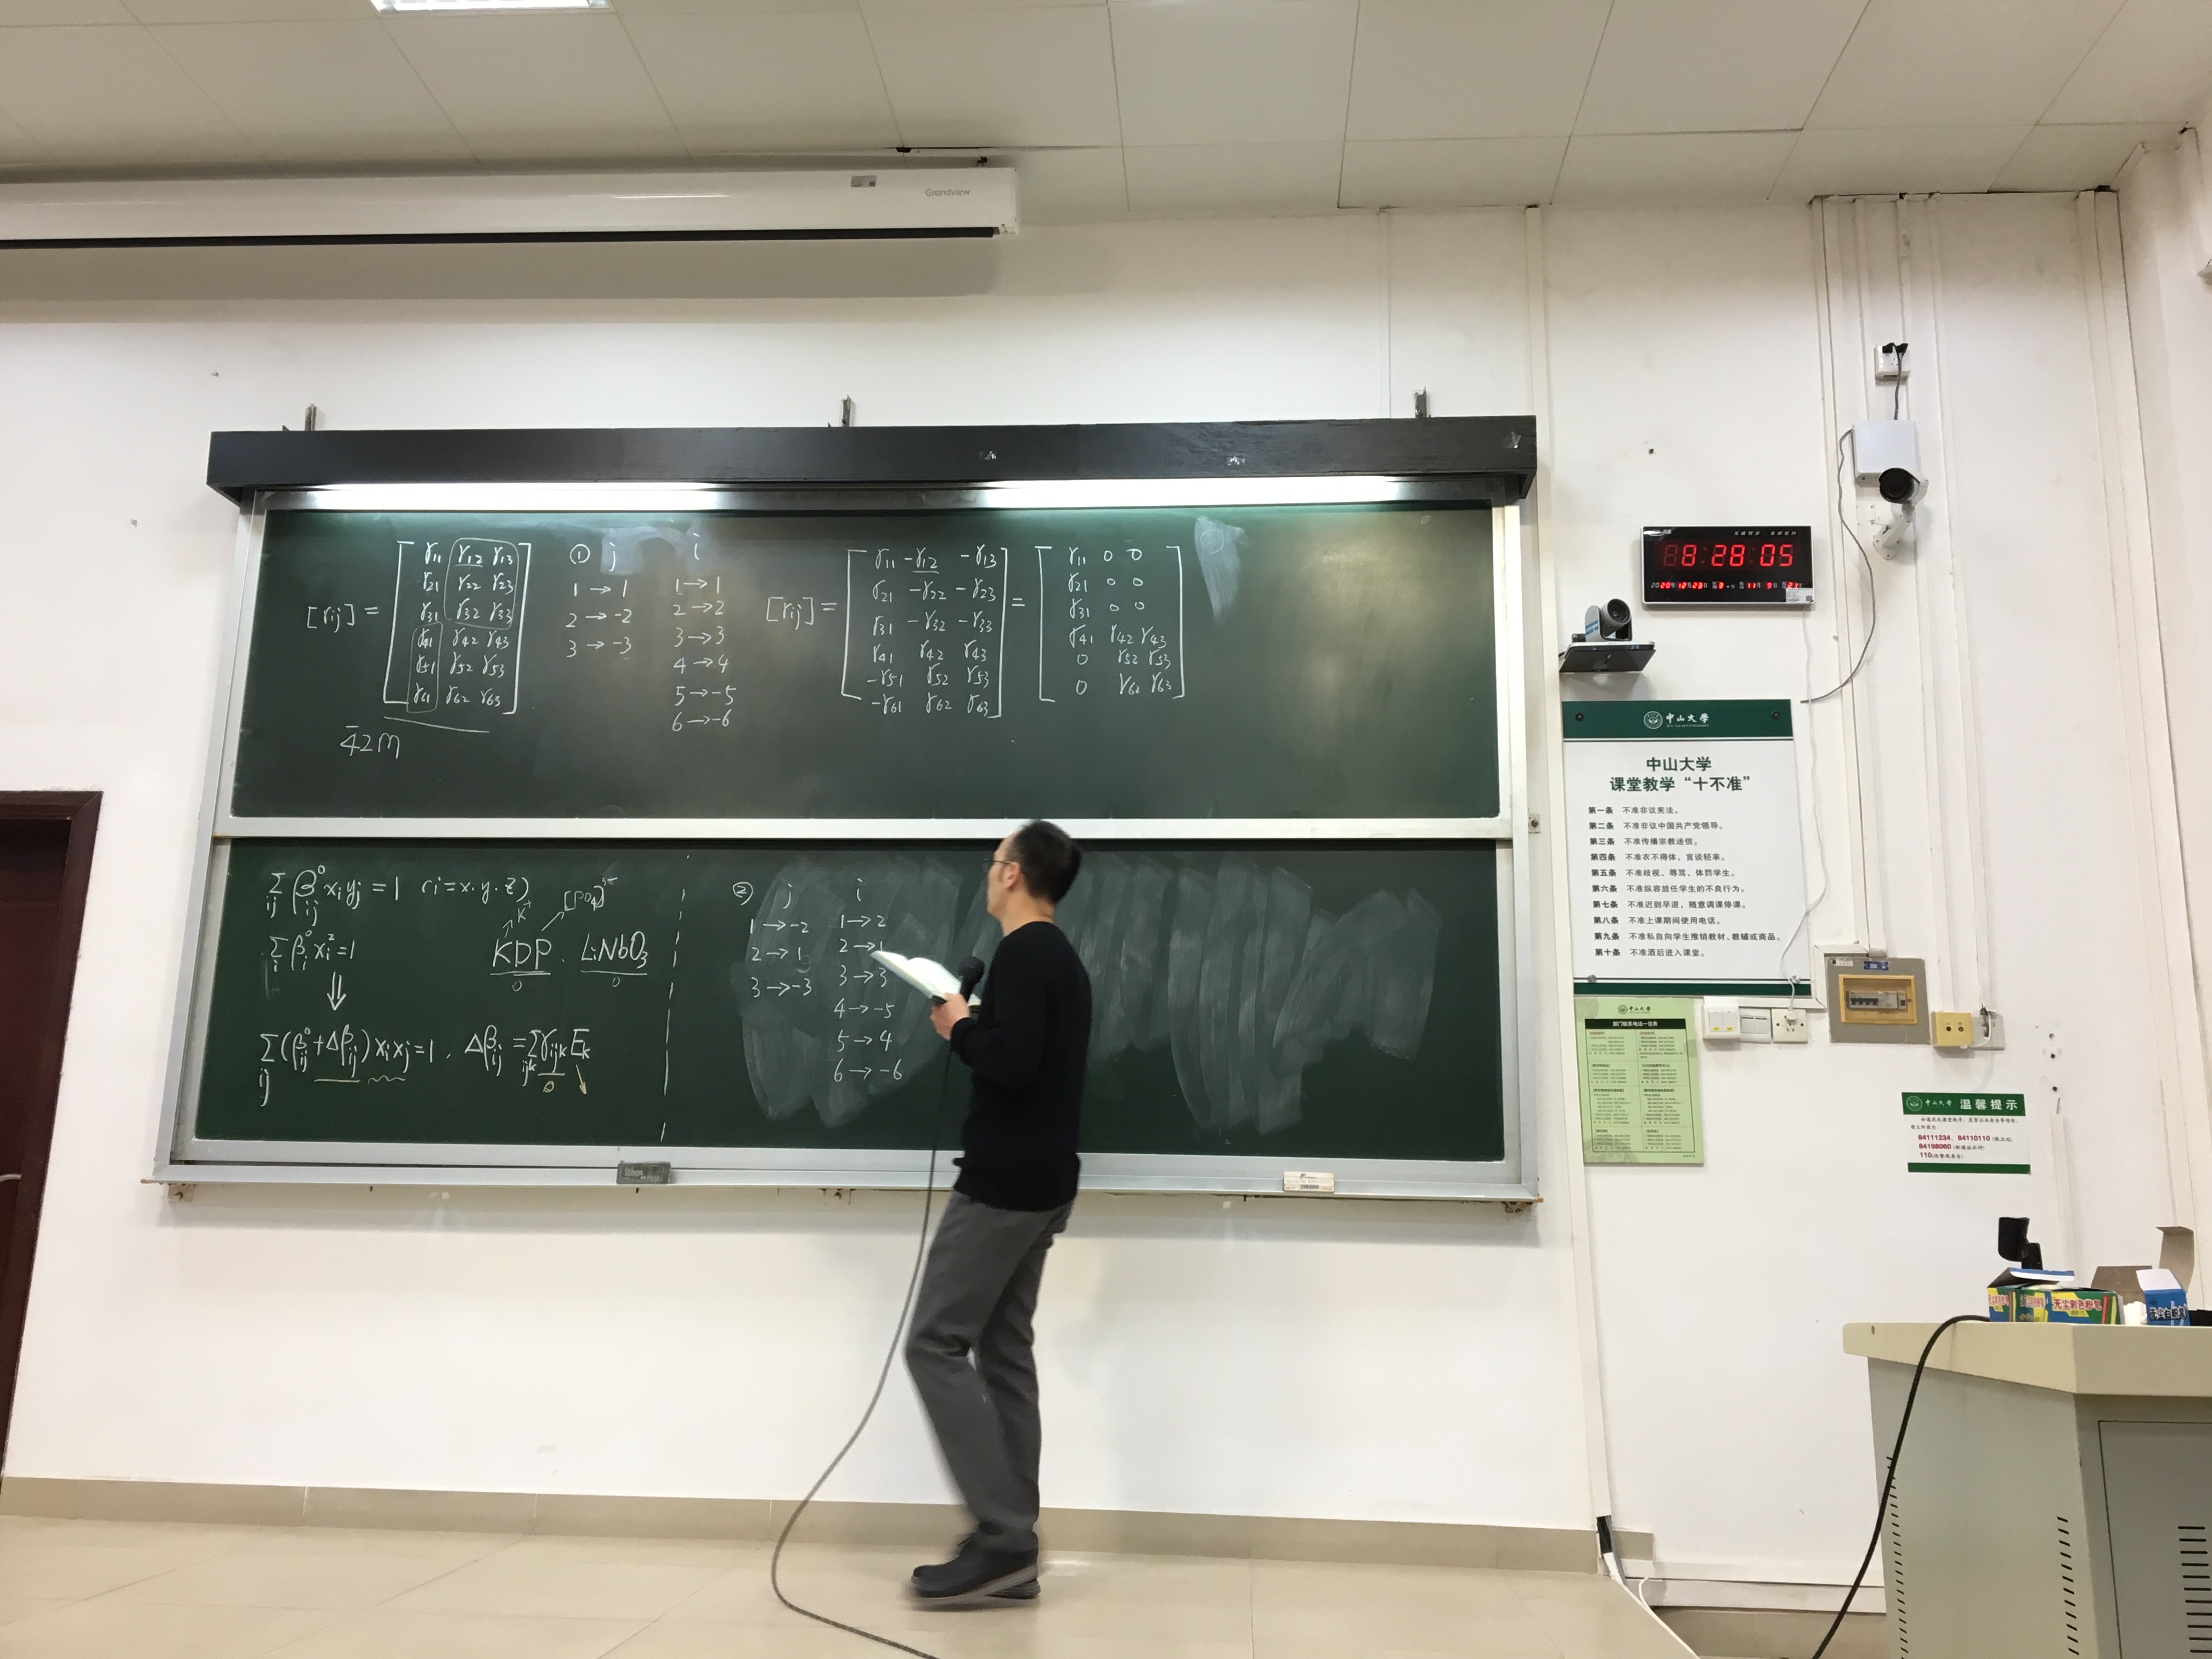 Grandview
[γij] =
γ11 γ12 γ13
γ21 γ22 γ23
γ31 γ32 γ33
γ41 γ42 γ43
γ51 γ52 γ53
γ61 γ62 γ63
4̄2m
① j i
1 → 1 1 → 1
2 → -2 2 → 2
3 → -3 3 → 3
4 → 4
5 → -5
6 → -6
[γij] =
γ11 -γ12 -γ13
γ21 -γ22 -γ23
γ31 -γ32 -γ33
γ41 γ42 γ43
-γ51 γ52 γ53
-γ61 γ62 γ63
=
γ11 0 0
γ21 0 0
γ31 0 0
γ41 γ42 γ43
0 γ52 γ53
0 γ62 γ63
∑ij β⁰ij xiyj = 1 (i=x.y.z)
∑i β⁰i xi² = 1
⇓
∑ij (β⁰ij + Δβij) xixj = 1 , Δβij = ∑ijk γijk Ek
K⁺ [PO4]³⁻
KDP . LiNbO3
② j i
1 → -2 1 → 2
2 → 1 2 → 1
3 → -3 3 → 3
4 → -5
5 → 4
6 → -6
8:28:05
中山大学
中山大学
课堂教学“十不准”
第一条 不准非议宪法。
第二条 不准非议中国共产党领导。
第三条 不准传播宗教迷信。
第四条 不准衣不得体，言谈轻率。
第五条 不准歧视、辱骂、体罚学生。
第六条 不准纵容放任学生的不良行为。
第七条 不准迟到早退，随意调课停课。
第八条 不准上课期间使用电话。
第九条 不准私自向学生推销教材、教辅或商品。
第十条 不准酒后进入课堂。
中山大学
部门联系电话一览表
中山大学 温馨提示
84111234、84110110
84198060
110
无尘彩色粉笔